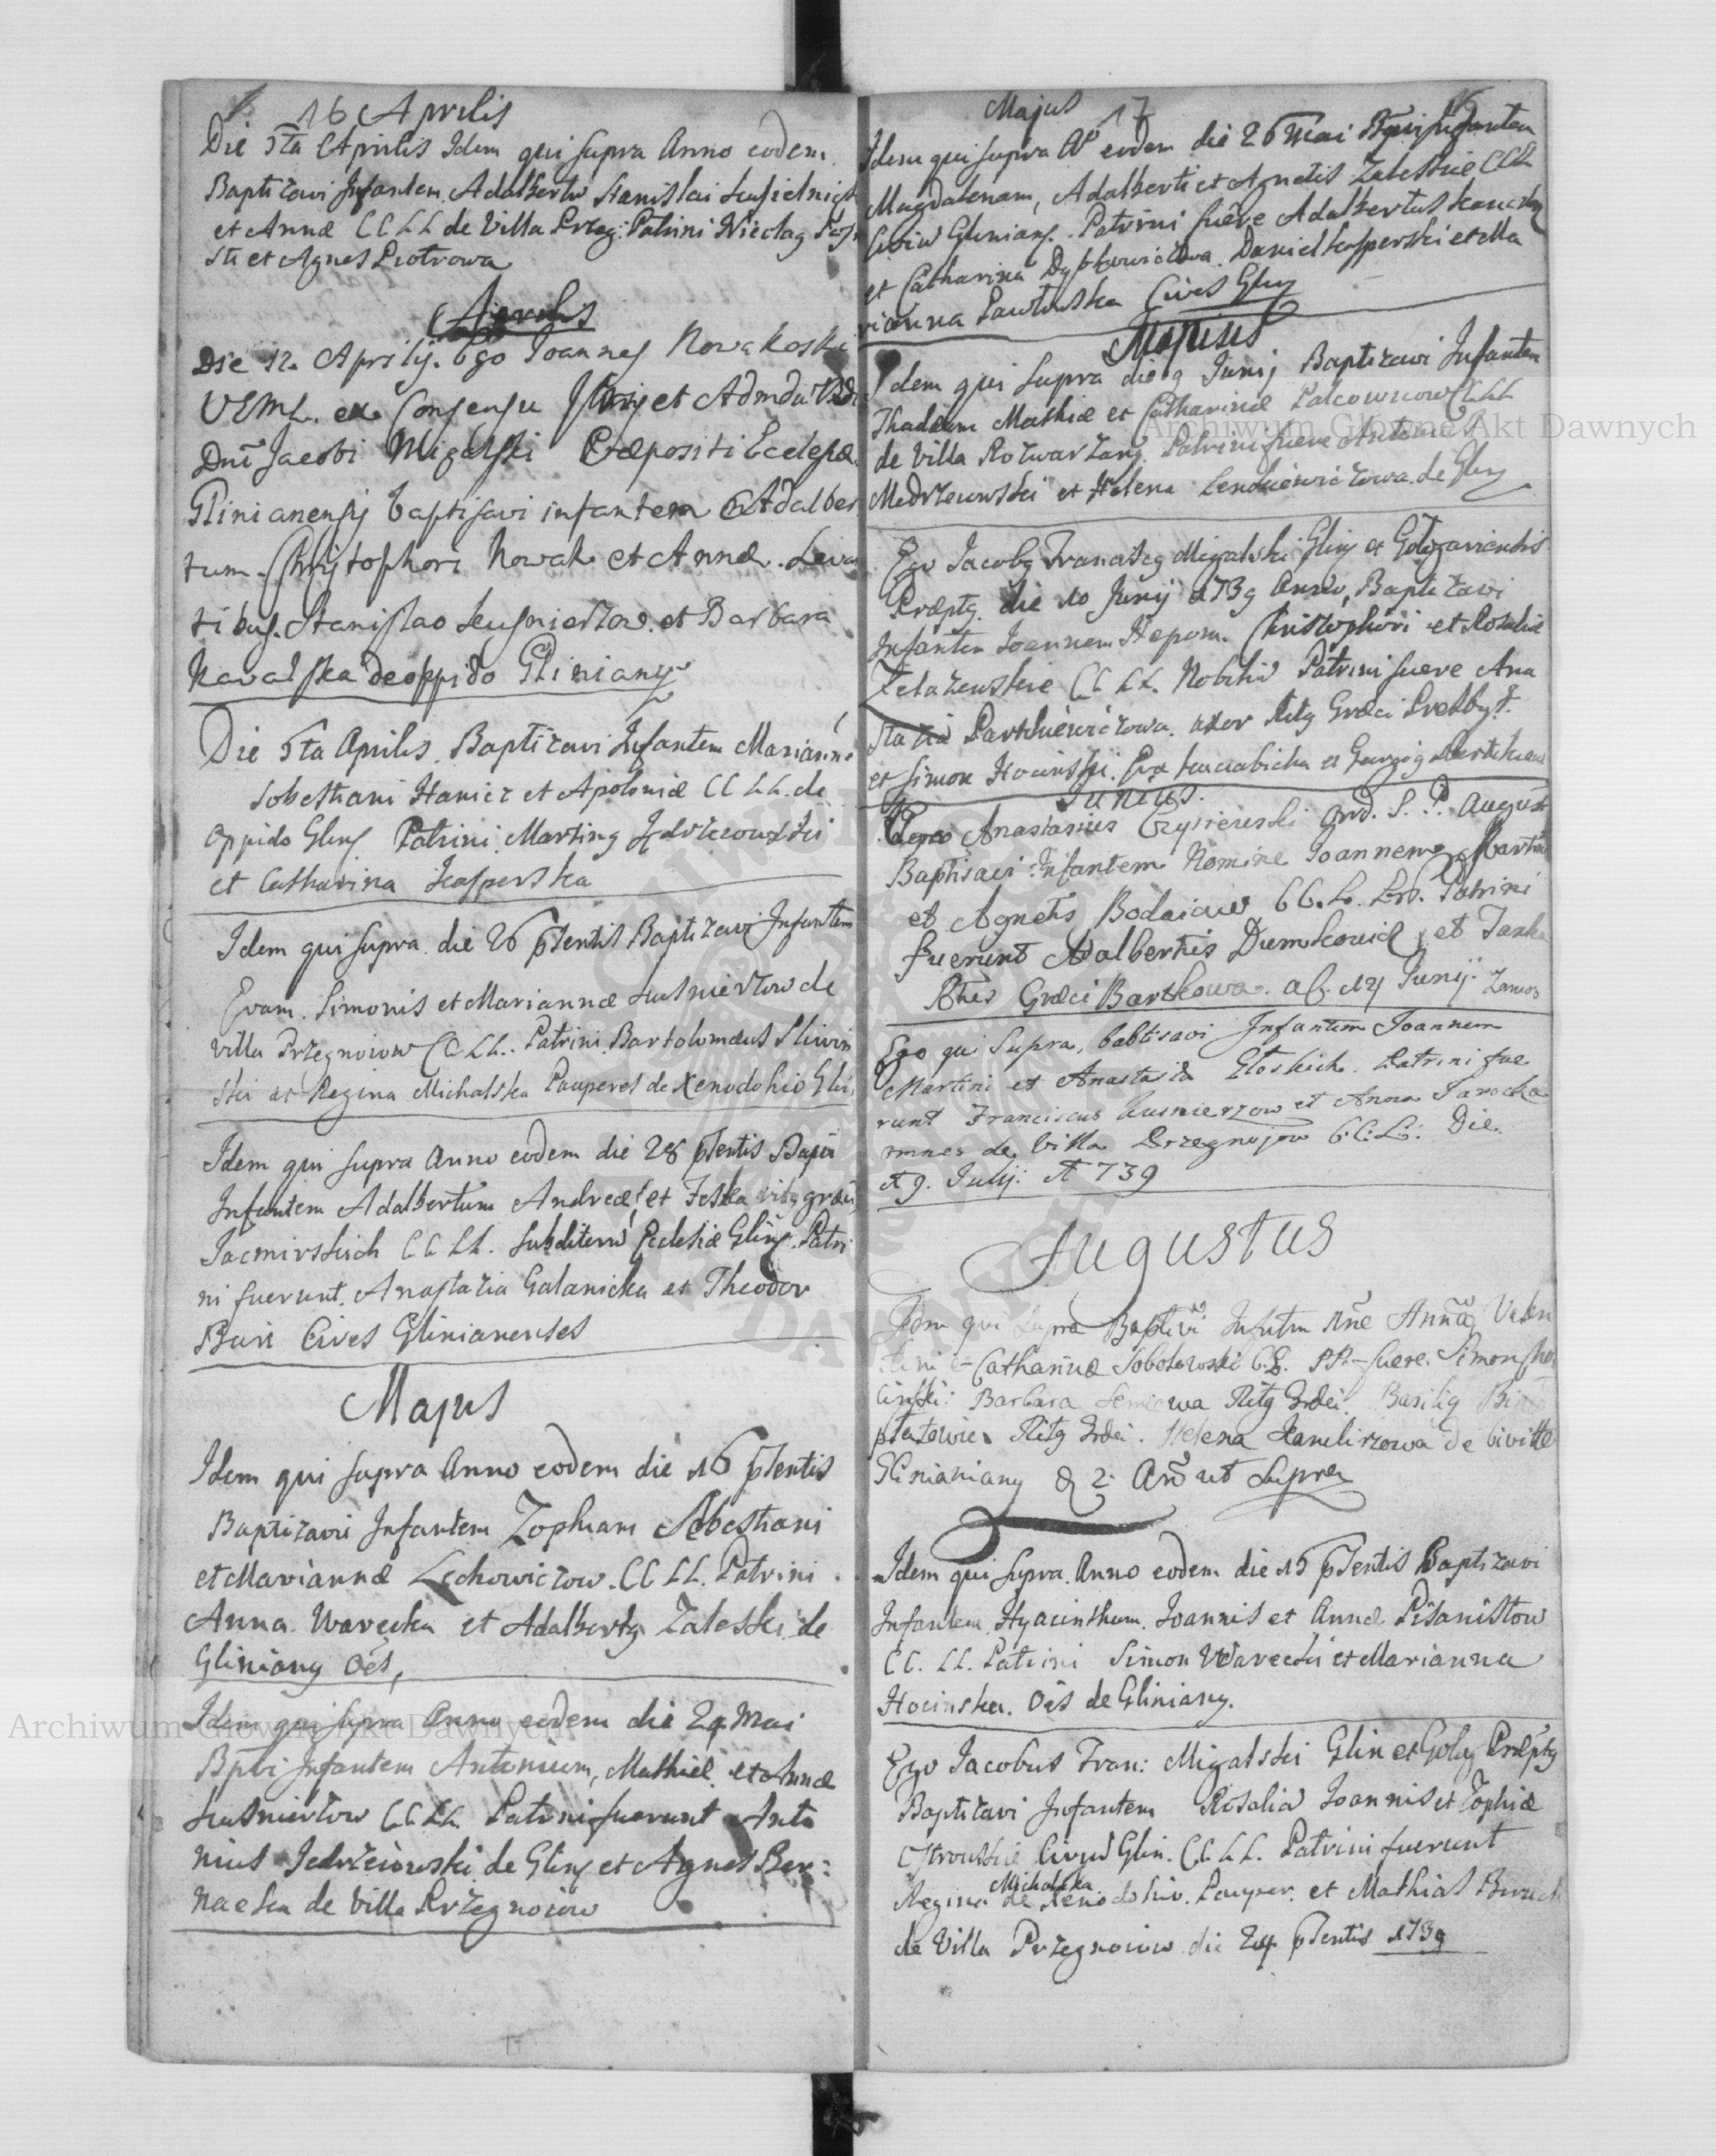 16 Aprilis
Die 5ta Aprilis Idem qui supra Anno eodem
Baptizavi Infantem Adalbertu Stanislai
et Annæ CCLL de Villa Przeg: Patrini Nicolag
ski et Agnes Piotrowa
Aprilis
Die 12. Aprilij. Ego Joannes Nowakoski
VSML. ex Consensu Illris et Admdu Rdi
Dni Jacobi Migalski Præpositi Ecclesiæ
Glinianensis baptisavi infantem Adalber
tum. Christophori Nowak et Annæ. Levan
tibus. Stanislao Kusnierzow. et Barbara
Kavalska de oppido Gliniany
Die 5ta Aprilis. Baptizavi Infantem Mariann
Sobestiani Haniez et Apoloniæ CCLL. de
Oppido Gliny Patrini Marting Jedrzeiowski
et Catharina Kasperska
Idem qui supra. die 26 pśentis Baptizavi Infantem
Evam. Simonis et Mariannæ Kusnierzow de
villa Przegnoiow CCLL. Patrini Bartolomæus Sliwin
ski et Regina Michalska Pauperes de Xenodohio Glin
Idem qui supra Anno eodem die 28 pśentis Bapvi
Infantem Adalbertum Andreæ et Teska ritg græci
Jacmirskich CCLL. subditoru Ecclesiæ Gliny. Patri
ni fuerunt. Anastazia Galanicka et Theodor
Buri Cives Glinianenses
Majus
Idem qui supra Anno eodem die 16 pśentis
Baptizavi Infantem Zophiam Sebestiani
et Mariannæ Lechowiczow. CCLL. Patrini
Anna Warecka et Adalbertg Zaleski de
Gliniany Oēs,
Idem qui supra Anno eodem die 24 Mai
Bptvi Infantem Antonium, Mathiæ et Annæ
Kusnierzow CCLL Patrini fuerunt Anto
nius Jedrzeiowski de Gliny et Agnes Ber:
nacka de Villa Przegnoiow
Majus 17
Idem qui supra Ao eodem die 26 Mai Bptvi Infantem
Magdalenam, Adalberti et Agnetis Zaleskie CCLL
Civiu Gliniany. Patrini fuêre Adalbertus
et Catharina Daniel Kasperski et Ma
rianna Pawlowska Cives Gliny
Majus
Idem qui supra die 9 Junij Baptizavi Infantem
Thadeum Mathiæ et Catharinæ Palcownow CCLL
de Villa Rozwarzany. Patrini fuere Antonius
Medrzeuwski et Helena Lenkiewiczowa de Gliny
Ego Jacobg Franciscg Migalski Gliny et Gologoriensis
Præptg. die 10 Junij 1739 Anno, Baptizavi
Infantem Joannem Nepom. Christophori et Rosaliæ
Zelazewskie CCLL. Nobiliu Patrini fuere Ana
stazia Partkiewiczowa. uxor Ritg Græci Presbyt.
et Simon Hocinski. Eva et
Junius.
Ego Anastasius Czyzewski Ord. S. P. August
Baptisavi Infantem Nomine Joannem Martini
et Agnetis Bodaiow CC. L. Patrini
fuerunt Adalbertus Dumkowicz et Janka
Rtûs Græci Bartkowa. af. 24 Junij
Ego qui Supra, babtisavi Infantem Joannem
Martini et Anastasia Patrini fue
runt Franciscus Kusnierzow et Anna Sarocka
omnes de Villa Przegnojow C.C.L: Die
19. Julij: A 739
Augustus
Idem qui Supra Baptivi Infntm Nne Annã, Valen
tini & Catharinæ Sobolewski C.L. PP. fuere. Simon Ho
cinski: Barbara Ritg Grdei. Basilig
Ritg Grdei. Helena de Civitte
Glinianiany d 2. Anõ ut Supra
Idem qui supra. Anno eodem die 15 pśentis Baptizavi
Infantem Hyacinthum. Joannis et Annæ Pisanistow
CC. LL. Patrini Simon Warecki et Marianna
Hocinska. Oēs de Gliniany.
Ego Jacobus Fran: Migalski Glin et Golg Præptg
Baptizavi Infantem Rosalia Joannis et Zophiæ
Ostrouskie Civiu Glin. CC LL. Patrini fuerunt
Regina Michalska de Xenodohio. Pauper. et Mathias
de Villa Przegnoiow die 24 pśentis 1739
Archiwum Główne Akt Dawnych
Archiwum Główne Akt Dawnych